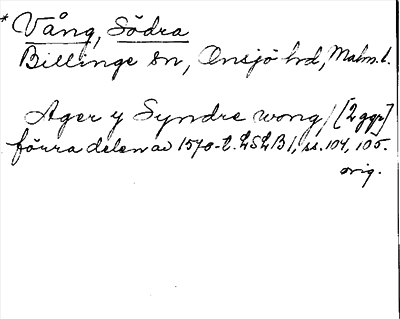 * Vång, Södra
Billinge sn, Onsjö hd, Malm.l.
Ager y Syndre wong/ [2 ggr]
förra delen av 1570-t. LSLB 1, ss. 104, 105.
orig.